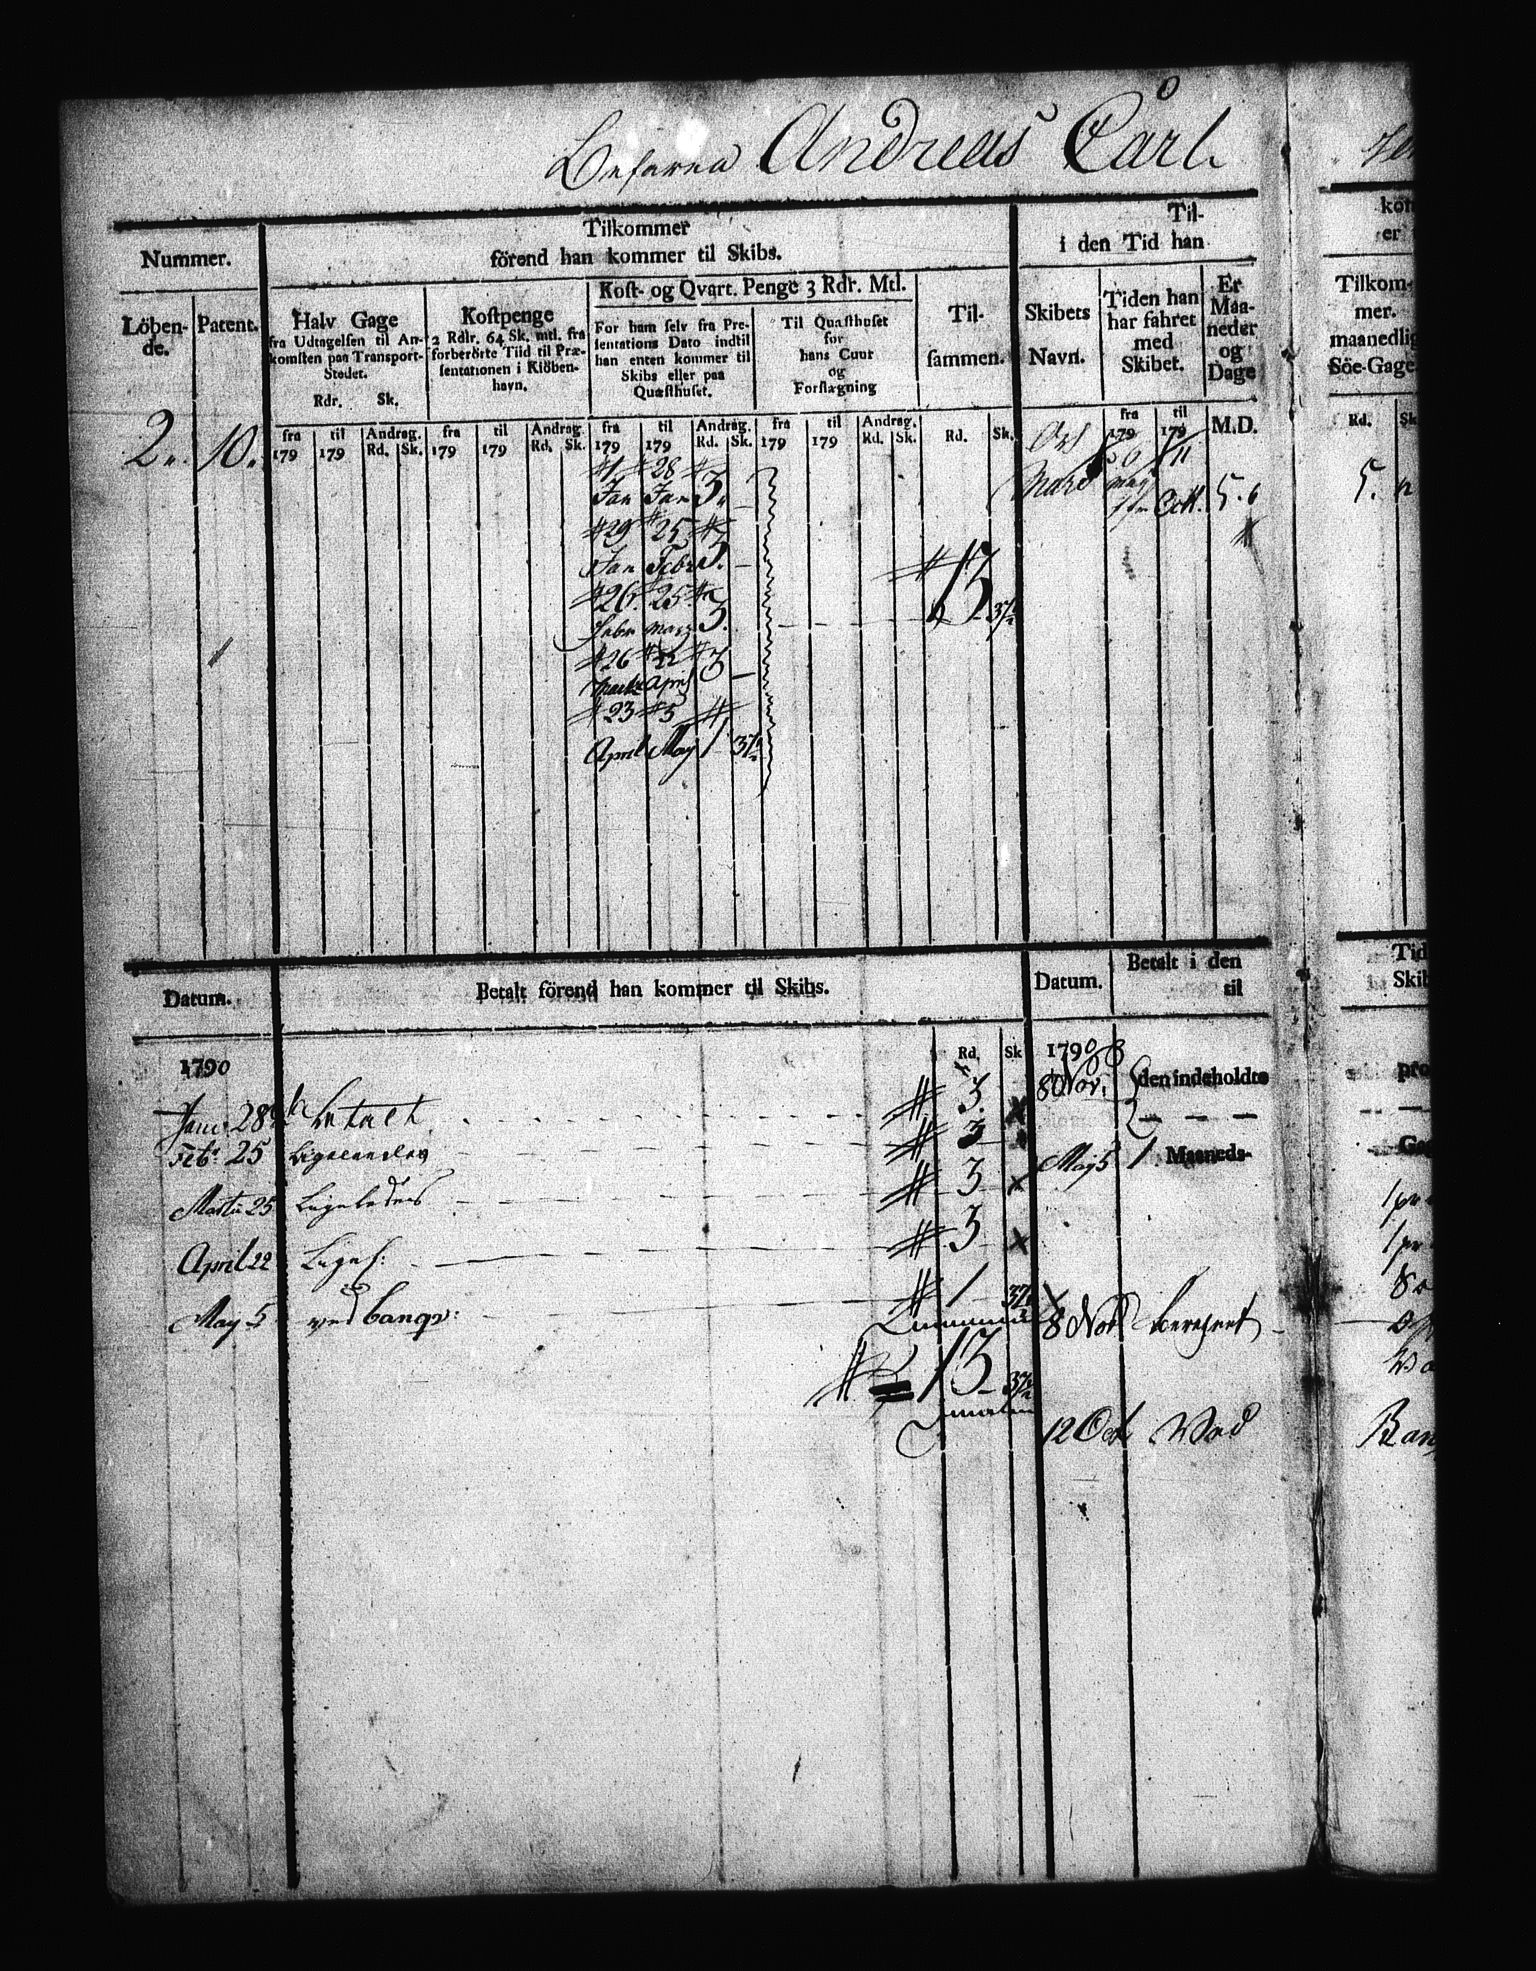 Befarna Andreas Carl
Nummer.
Löben-
de.
Patent.
2.. 10.
Tilkommer
förend han kommer til Skibs.
Halv Gage
fra Udtagelsen til An-
komsten paa Transport-
Stedet.
Rdr. Sk.
Kostpenge
2 Rdlr. 64 Sk. mtl. fra
forberörte Tiid til Præ-
sentationen i Kiöben-
havn.
Kost- og Qvart. Penge 3 Rdr. Mtl.
For ham selv fra Præ-
sentations Dato indtil
han enten kommer til
Skibs eller paa
Quæsthuset.
Til Quæsthuset
for
hans Cuur
og
Forplægning
Til-
sammen.
fra 179 til 179 Andrag. Rd. Sk.
fra 179 til 179 Andrag. Rd. Sk.
fra 179 til 179 Andrag. Rd. Sk.
fra 179 til 179 Andrag. Rd. Sk.
Rd. Sk.
1 28
Jan Jan 3
29 25
Jan Febr 3. –
26 25
Febr Marz 3.
26 22
April 3 –
23 5
April May 1 37½
13 37½
Til-
i den Tid han
Skibets
Navn.
Tiden han
har fahret
med
Skibet.
Er
Maa-
neder
og
Dage
fra 179 til 179 M.D.
6 11
May Octb. 5. 6
kom
er
Tilkom-
mer.
maanedlig
Söe-Gage.
Rd. Sk
5.
Datum.
Betalt förend han kommer til Skibs.
1790
Rd. Sk
Janu. 28 betalt 3.
Feb. 25 Ligeledes 3
Martii 25 Ligeledes 3
April 22 Ligel: 3
May 5 ved banqv: 1 37½
13 37½
Datum.
Betalt i den
til
1790
8 Nov. den indeholdte
May 5 1 Maaneds-
8 Nov
12 Oct Ved
Tid
Skib
pro
Ga
1 pr
1 pr
Ban